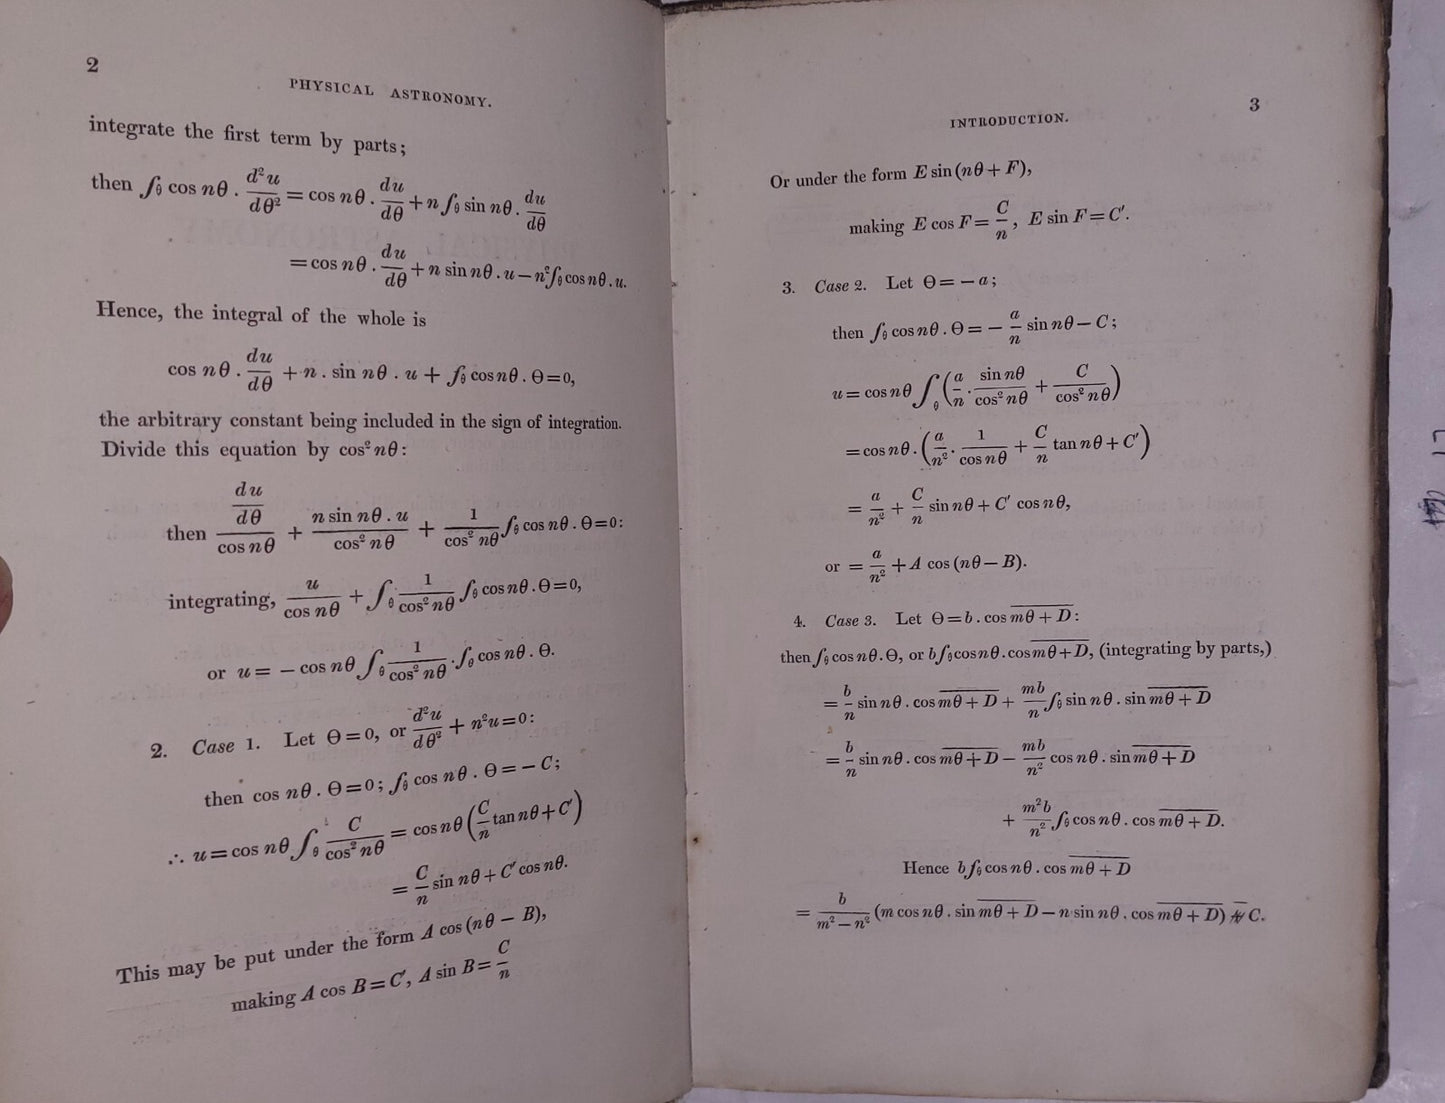 2
PHYSICAL ASTRONOMY.
integrate the first term by parts;
then ∫θ cos nθ . d²u/dθ² = cos nθ . du/dθ + n ∫θ sin nθ . du/dθ
= cos nθ . du/dθ + n sin nθ . u − n² ∫θ cos nθ . u.
Hence, the integral of the whole is
cos nθ . du/dθ + n . sin nθ . u + ∫θ cos nθ . Θ = 0,
the arbitrary constant being included in the sign of integration.
Divide this equation by cos² nθ :
then (du/dθ)/(cos nθ) + (n sin nθ . u)/(cos² nθ) + 1/(cos² nθ) ∫θ cos nθ . Θ = 0 :
integrating, u/(cos nθ) + ∫θ 1/(cos² nθ) ∫θ cos nθ . Θ = 0,
or u = − cos nθ ∫θ 1/(cos² nθ) . ∫θ cos nθ . Θ.
2. Case 1. Let Θ = 0, or d²u/dθ² + n²u = 0 :
then cos nθ . Θ = 0 ; ∫θ cos nθ . Θ = − C ;
∴ u = cos nθ ∫θ C/(cos² nθ) = cos nθ (C/n tan nθ + C′)
= C/n sin nθ + C′ cos nθ.
This may be put under the form A cos (nθ − B),
making A cos B = C′, A sin B = C/n
3
INTRODUCTION.
Or under the form E sin (nθ + F),
making E cos F = C/n, E sin F = C′.
3. Case 2. Let Θ = − a ;
then ∫θ cos nθ . Θ = − a/n sin nθ − C ;
u = cos nθ ∫θ (a/n . (sin nθ)/(cos² nθ) + C/(cos² nθ))
= cos nθ . (a/n² . 1/(cos nθ) + C/n tan nθ + C′)
= a/n² + C/n sin nθ + C′ cos nθ,
or = a/n² + A cos (nθ − B).
4. Case 3. Let Θ = b . cos mθ + D :
then ∫θ cos nθ . Θ, or b ∫θ cos nθ . cos mθ + D, (integrating by parts,)
= b/n sin nθ . cos mθ + D + mb/n ∫θ sin nθ . sin mθ + D
= b/n sin nθ . cos mθ + D − mb/n² cos nθ . sin mθ + D
+ m²b/n² ∫θ cos nθ . cos mθ + D.
Hence b ∫θ cos nθ . cos mθ + D
= b/(m² − n²) (m cos nθ . sin mθ + D − n sin nθ . cos mθ + D) − C.